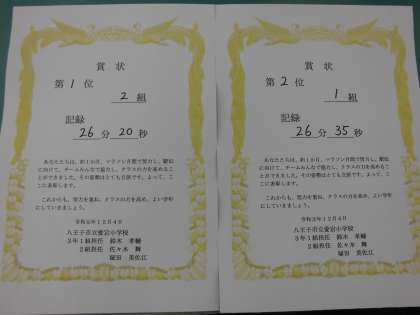 賞 状
第 1 位
2 組
記録
26 分 20 秒
あなたたちは、約1か月、マラソン月間で努力し、駅伝
に向けて、チームみんなで協力し、クラスの力を高めるこ
とができました。その姿勢はとても立派です。よって、こ
こに表彰します。
これからも、努力を重ね、クラスの力を高め、よい学年
にしていきましょう。
令和元年12月4日
八王子市立愛宕小学校
3年1組担任 鈴木 孝輔
2組担任 佐々木 舞
堀田 美佐江
賞 状
第 2 位
1 組
記録
26 分 35 秒
あなたたちは、約1か月、マラソン月間で努力し、駅伝
に向けて、チームみんなで協力し、クラスの力を高めるこ
とができました。その姿勢はとても立派です。よって、こ
こに表彰します。
これからも、努力を重ね、クラスの力を高め、よい学年
にしていきましょう。
令和元年12月4日
八王子市立愛宕小学校
3年1組担任 鈴木 孝輔
2組担任 佐々木 舞
堀田 美佐江